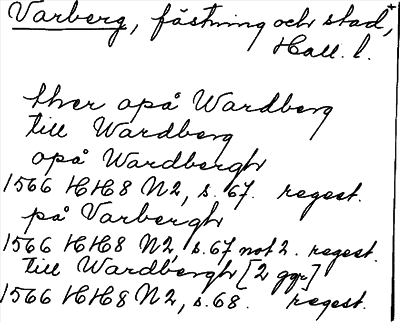 Varberg, fästning och stad,
Hall. l.
ther opå Wardberg
till Wardberg
opå Wardbergh
1566 HH8 N2, s. 67. regest.
på Varbergh
1566 HH8 N2, s. 67, not 2. regest.
till Wardbergh [2 ggr]
1566 HH8 N2, s. 68. regest.